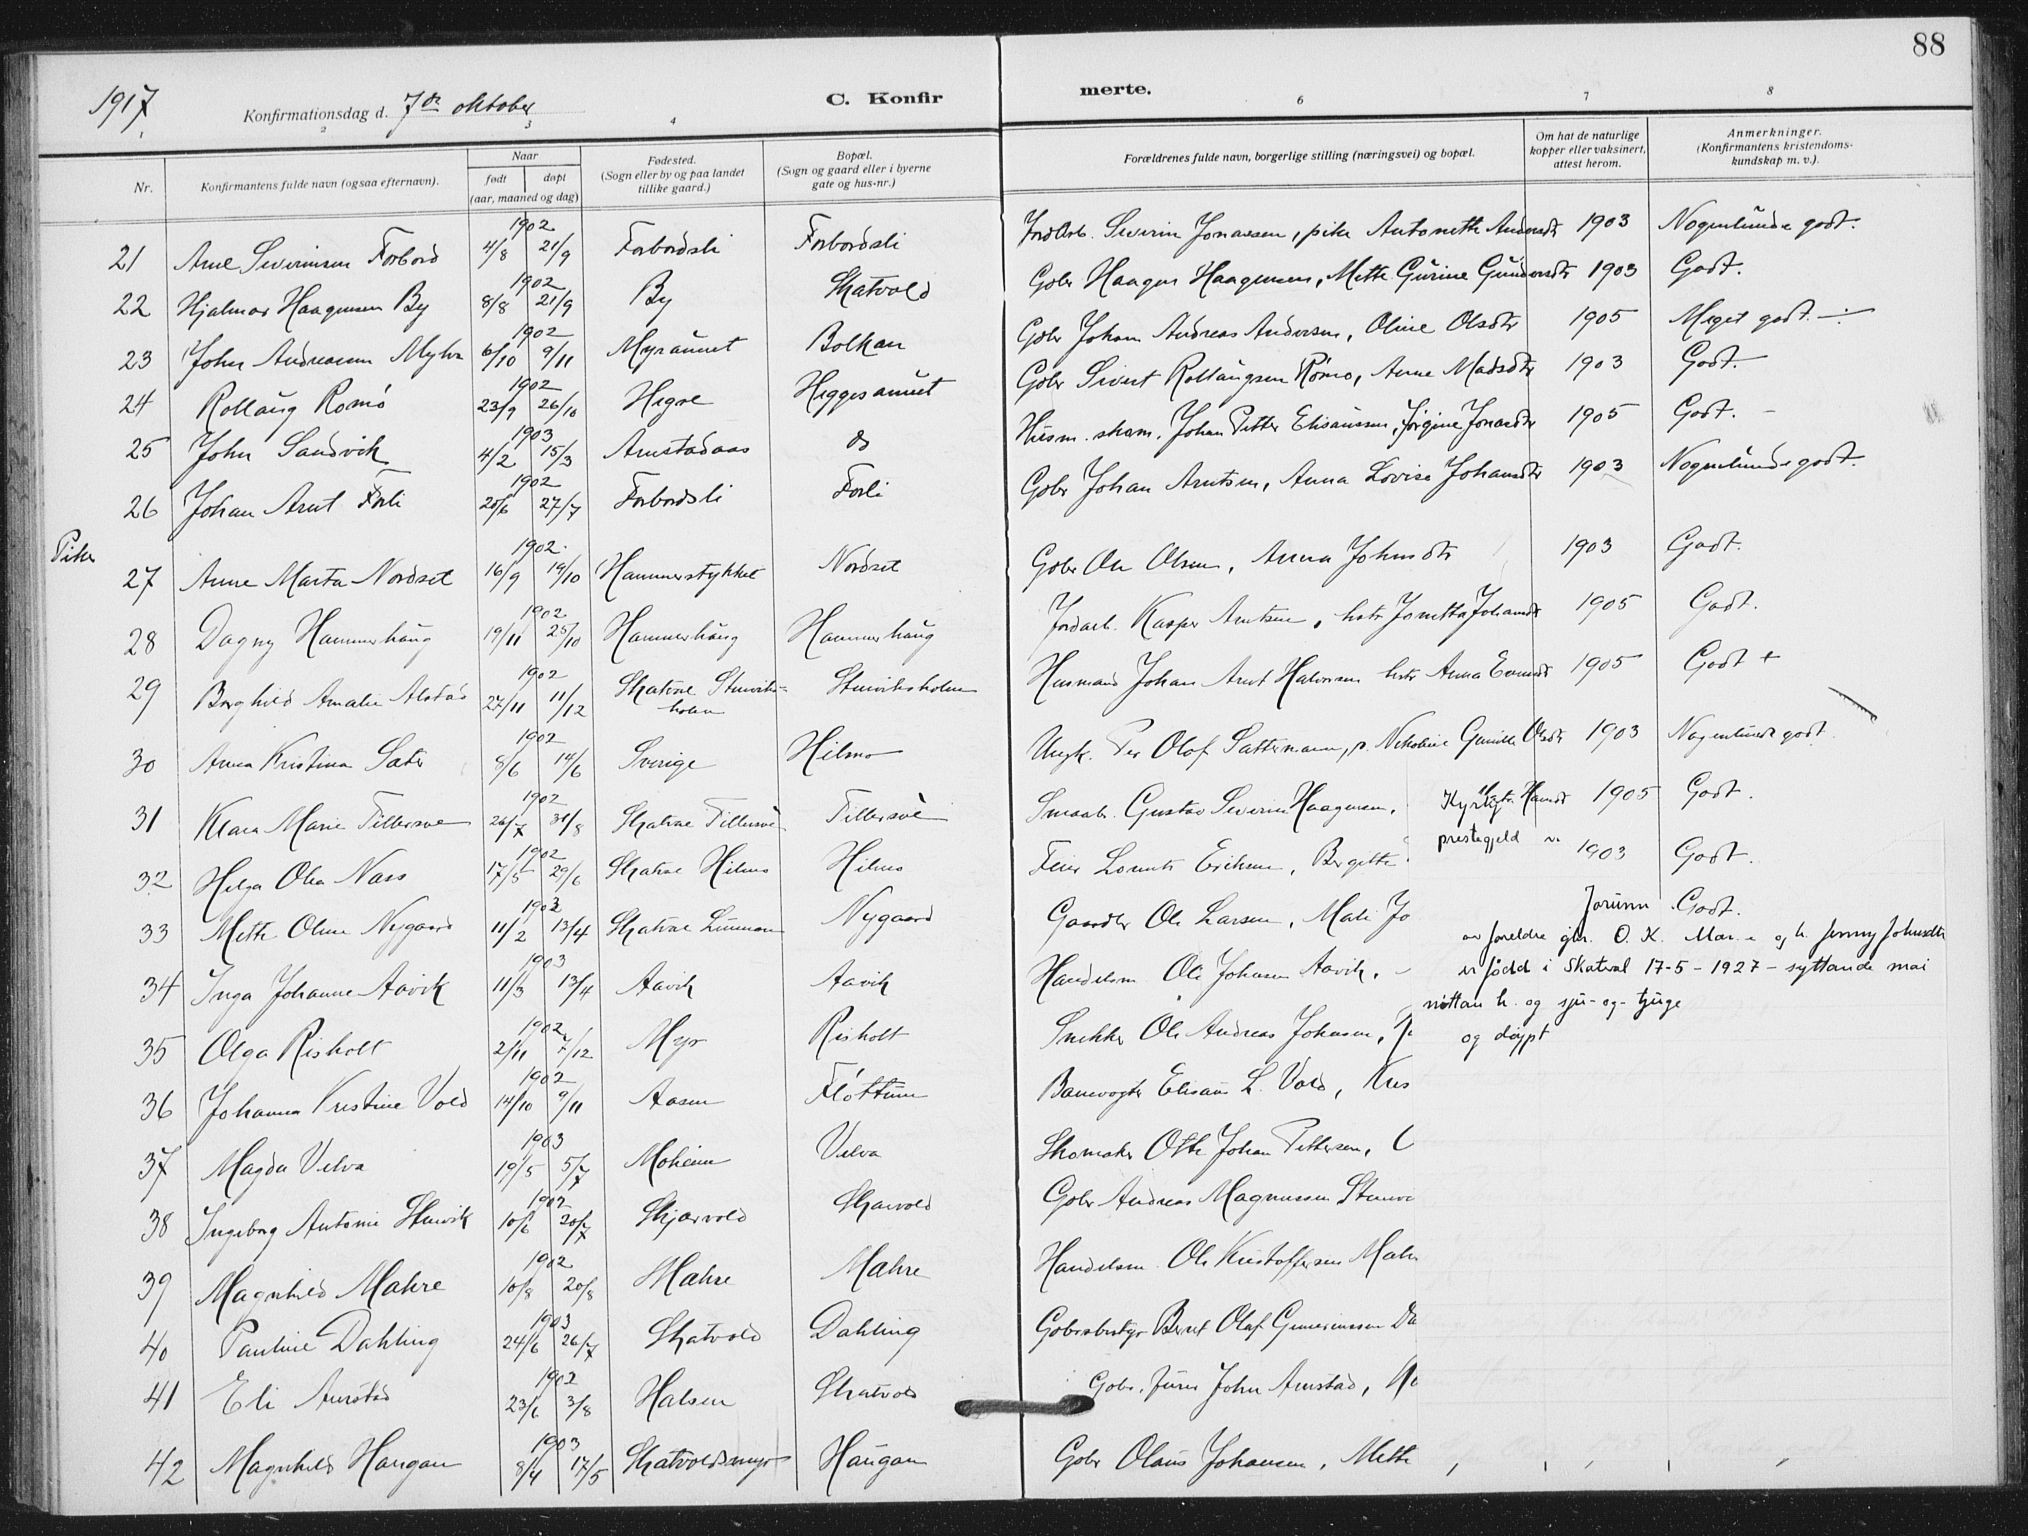 88
1917
Konfirmationsdag d. 7de oktober
C. Konfir
merte.
1 2 3 4 6 7 8
Nr.
Konfirmantens fulde navn (ogsaa efternavn).
Naar
født
døpt
(aar, maaned og dag)
Fødested.
(Sogn eller by og paa landet
tillike gaard.)
Bopæl.
(Sogn og gaard eller i byerne
gate og hus-nr.)
Forældrenes fulde navn, borgerlige stilling (næringsvei) og bopæl.
Om hat de naturlige
kopper eller vaksinert,
attest herom.
Anmerkninger.
(Konfirmantens kristendoms-
kundskap m. v.).
21 Arne Severinsen Forbord 1902 4/8 21/9 Forbordsli Forbordsli Jordarb. Severin Jonassen, pike Antonette 1903 Nogenlunde godt.
22 Hjalmar Haagensen By 1902 8/8 21/9 By Skatvold Gbr Haagen Haagensen, Mette Gurine 1903 Godt.
23 John Andreassen 1902 6/10 9/11 Myraunet Bolkan Gbr Johan Andreas Andersen, Oline Olsdtr 1905 Meget godt.
24 Rollaug Romo 1902 23/9 26/10 Hegre Heggesaunet Gbr Sivert Rollaugsen Romo, Anne Madsdtr 1903 Godt.
25 John Sandvik 1903 4/2 15/3 Arnstadaas do Husm. skom. Johan Petter Elisæussen, Jørgine Jonasdtr 1905 Godt.
26 Johan Arnt Forli 1902 20/6 27/7 Forbordsli Forli Gbr Johan Arntsen, Anna Lovise Johansdtr 1903 Nogenlunde godt.
Piker
27 Anne Marta Nordset 1902 16/9 19/10 Hammerstykket Nordset Gbr Ole Olsen, Anna Johnsdtr 1903 Godt.
28 Dagny Hammerhaug 1902 19/11 25/10 Hammerhaug Hammerhaug Jordarb. Kasper Arntsen, hstr Jonetta Johansdtr 1905 Godt.
29 Borghild Amalie Alstad 1902 27/11 11/12 Skatval Stenviks-
holm Stenviksholm Husmand Johan Arnt Halvorsen hstr Anna 1905 Godt +
30 Anna Kristina Sater 1902 8/6 14/6 Sverige Hilmo Ungk. Per Olof Sattermann, p. Nikoline Gunilla Olsdtr 1903 Nogenlunde godt.
31 Klara Marie Tillersøe 1902 26/7 31/8 Skatval Tillersøe Tillersøe Smaabr. Gustav Severin Haagensen, 1905 Godt.
prestegjeld
32 Helga Olea Nass 1902 17/5 29/6 Skatval Hilmo Hilmo Feier Lorents Eriksen, Bergitte 1903 Godt.
33 Mette Oline Nygaard 1903 11/2 13/4 Skatval Nygaard Gaardbr Ole Larsen, Mali Jo Jorunn Godt.
av foreldre gbr. O. K. Mæ og h. Jenny Johnsdtr
34 Inga Johanne Aavik 1903 11/3 13/4 Aavik Aavik Handelsm Ole Johnsen Aavik, er fødd i Skatval 17-5-1927 - syttande mai
nittan h. og sju-og-tjuge
35 Olga Risholt 1902 2/11 7/12 Myr Risholt Snekker Ole Andreas Johnsen, og døypt
36 Johanna Kristine Vold 1902 14/10 9/11 Aasen Fløttum Banevogter Elisæus L. Vold, Kris
37 Magda Velva 1903 19/5 5/7 Moheim Velva Skomaker Otte Johan Pettersen,
38 Ingeborg Antonie Stenvik 1902 10/6 20/7 Skjærvold Skjærvold Gbr Andreas Magnussen Stenvi
39 Magnhild Mahre 1902 10/8 20/8 Mahre Mahre Handelsm Ole Kristoffersen Mah
40 Pauline Dahling 1903 24/6 26/7 Skatvold Dahling Gbrsbestyr Bernt Olaf Guneriussen Da
41 Eli Arnstad 1902 23/6 3/8 Halsen Skatvold Gbr. furer John Arnstad,
42 Magnhild Haugan 1903 8/4 17/5 Skatvoldsmyr Haugan Gbr Olaus Johansen, Mette